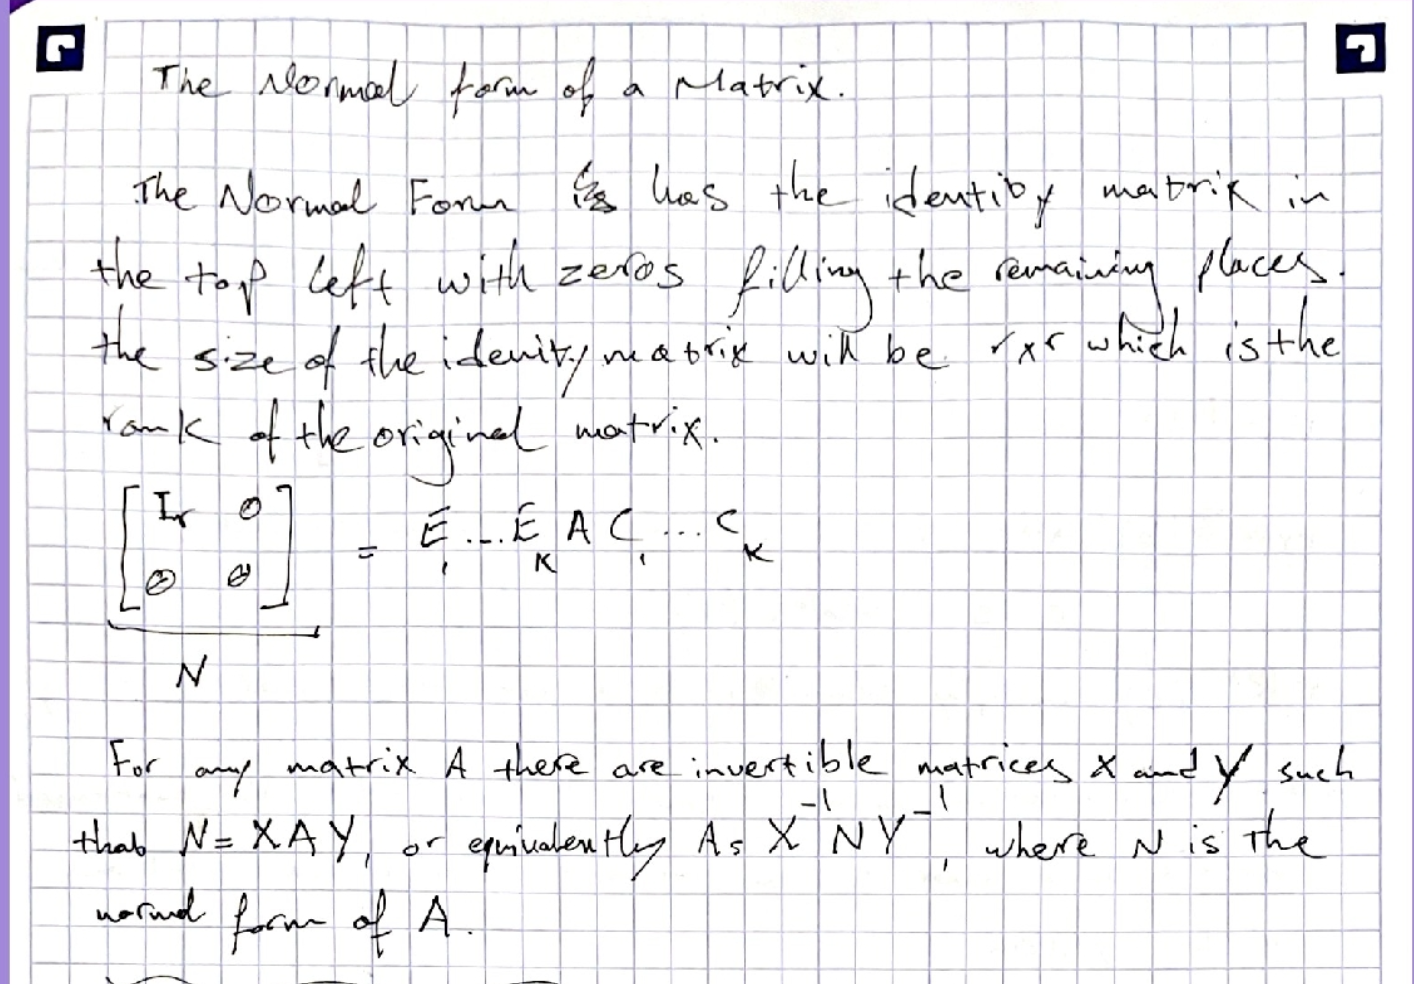 The Normal form of a Matrix.
The Normal Form is has the identity matrix in
the top left with zeros filling the remaining places.
the size of the idenity matrix will be r×r which is the
rank of the original matrix.
[ Ir 0 ] = E1 ... EK A C1 ... CK
[ 0 0 ]
N
For any matrix A there are invertible matrices X and Y such
that N = XAY, or equivalently A = X⁻¹NY⁻¹, where N is the
normal form of A.